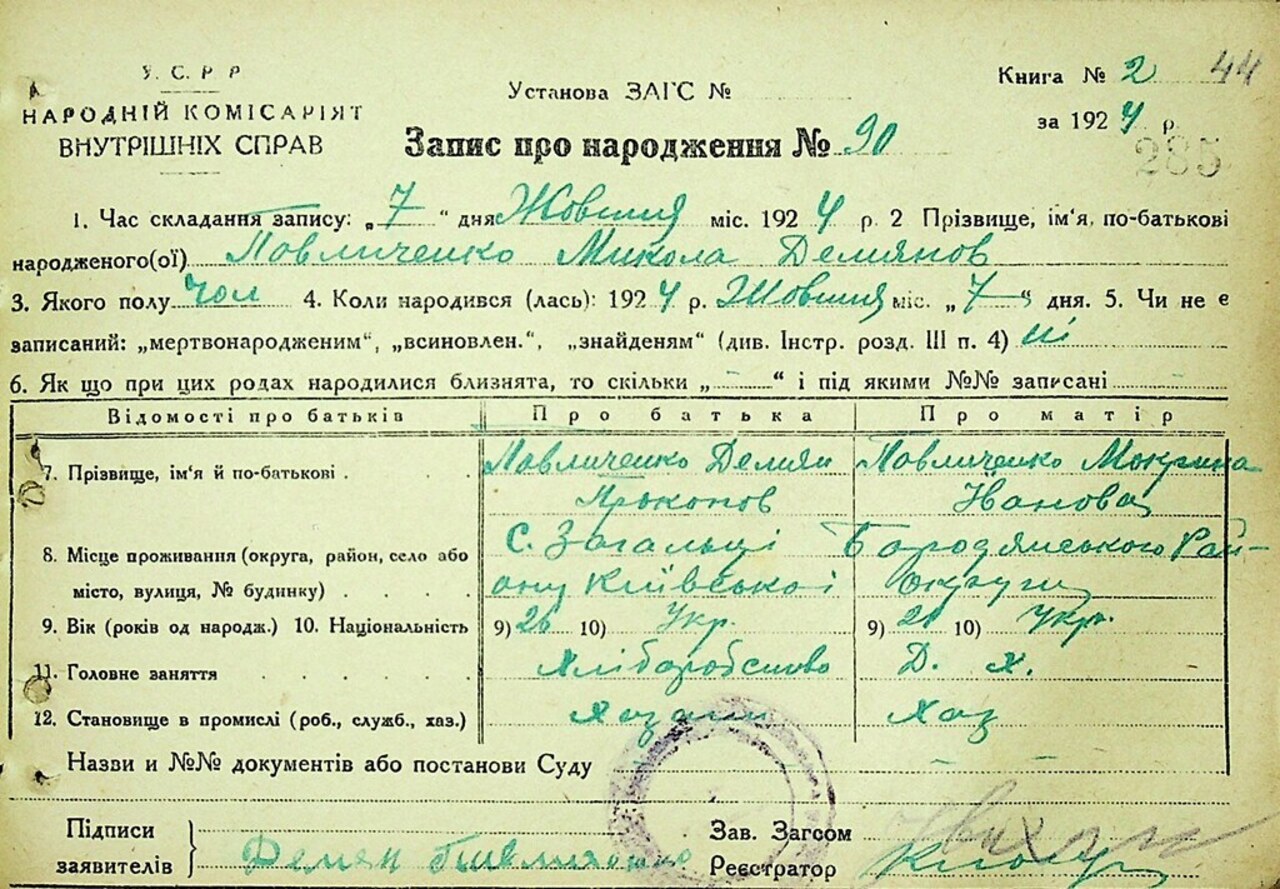 У. С. Р Р
НАРОДНІЙ КОМІСАРІЯТ
ВНУТРІШНІХ СПРАВ
Установа ЗАГС №
Запис про народження № 90
Книга № 2 44
за 1924 р.
285
1. Час складання запису: „7“ дня Жовтня міс. 1924 р. 2 Прізвище, ім'я, по-батькові
народженого(ої) Павличенко Микола Демянов
3. Якого полу чол 4. Коли народився (лась): 1924 р. Жовтня міс. „7“ дня. 5. Чи не є
записаний: „мертвонародженим“, „всиновлен.“, „знайденям“ (див. Інстр. розд. III п. 4) ні
6. Як що при цих родах народилися близнята, то скільки „ — “ і під якими №№ записані —
Відомості про батьків Про батька Про матір
7. Прізвище, ім'я й по-батькові . . . Павличенко Демян Павличенко Мокрина
Прокопов Іванова
8. Місце проживання (округа, район, село або С. Загальці Бородянського Рай-
місто, вулиця, № будинку) . . . . ону Київської округи
9. Вік (років од народж.) 10. Національність 9) 26 10) Укр. 9) 10) Укр.
11. Головне заняття . . . . . Хліборобство Д. х.
12. Становище в промислі (роб., служб., хаз.) хаз
Назви и №№ документів або постанови Суду — —
Підписи
заявителів Демян
Зав. Загсом
Реєстратор